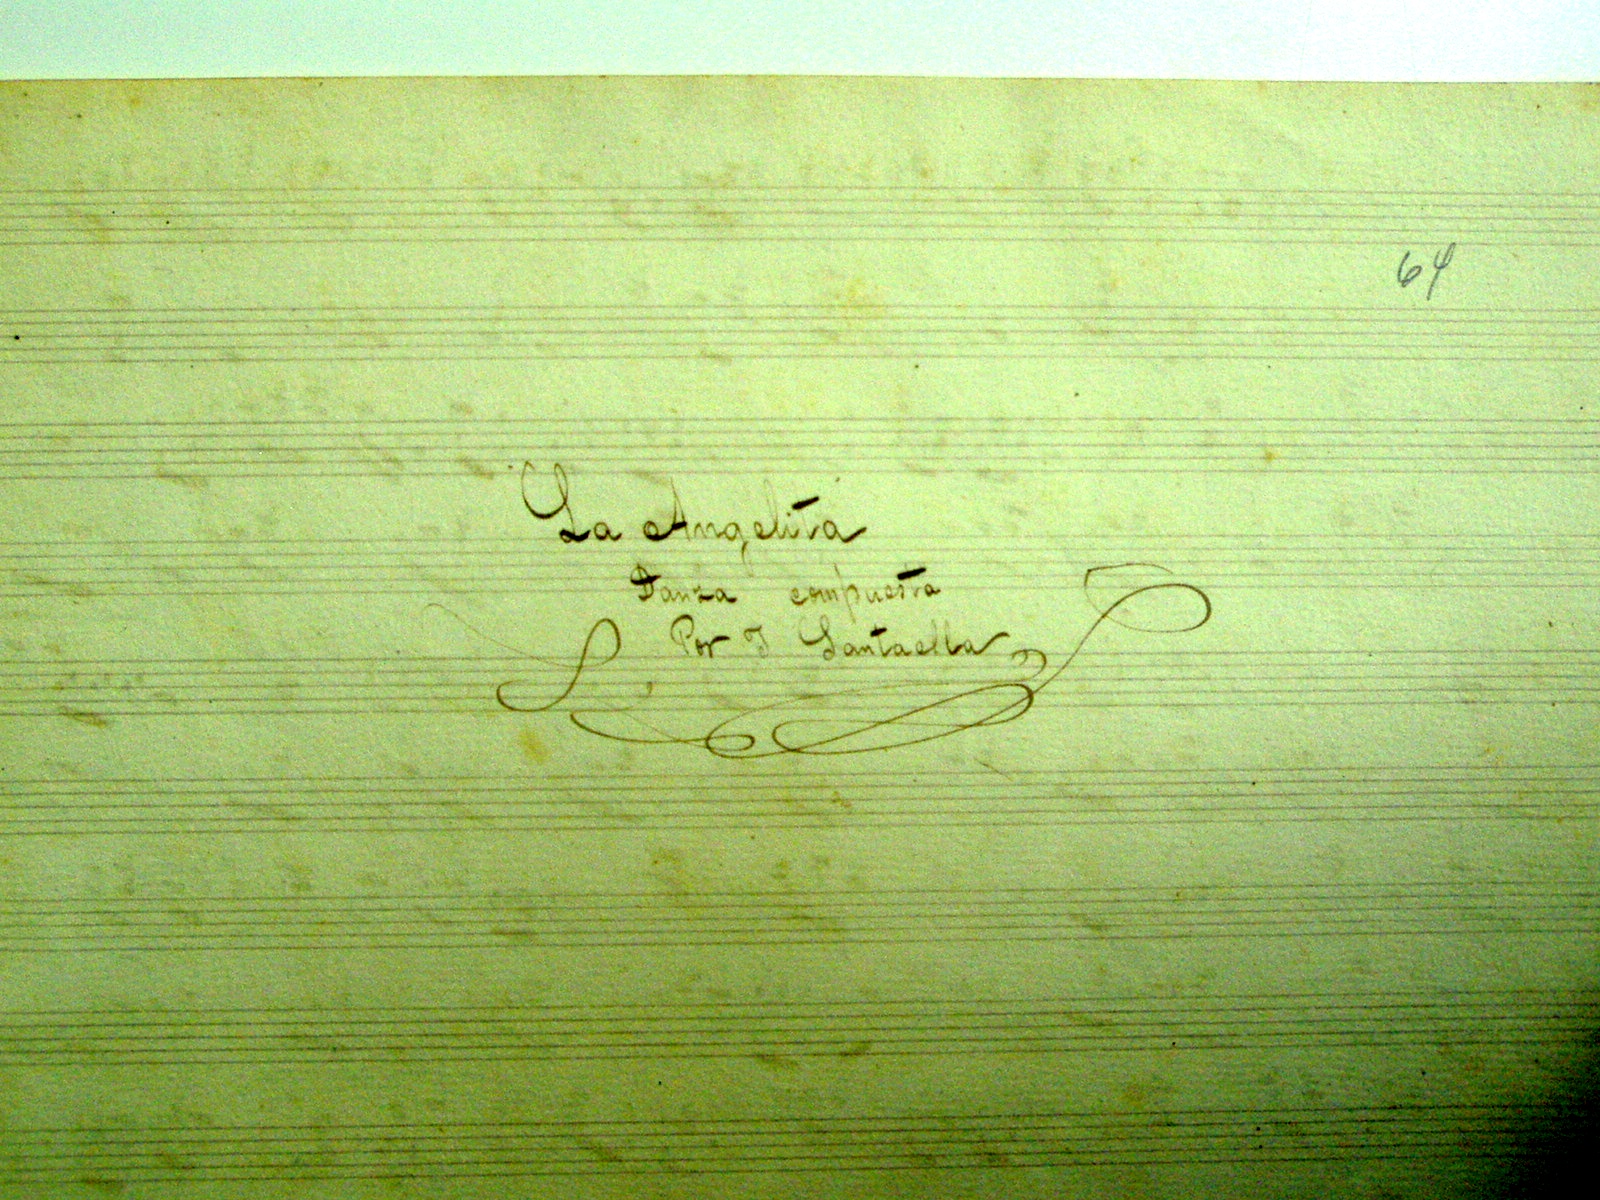 64
La Angelita
Danza compuesta
Por J Santaella